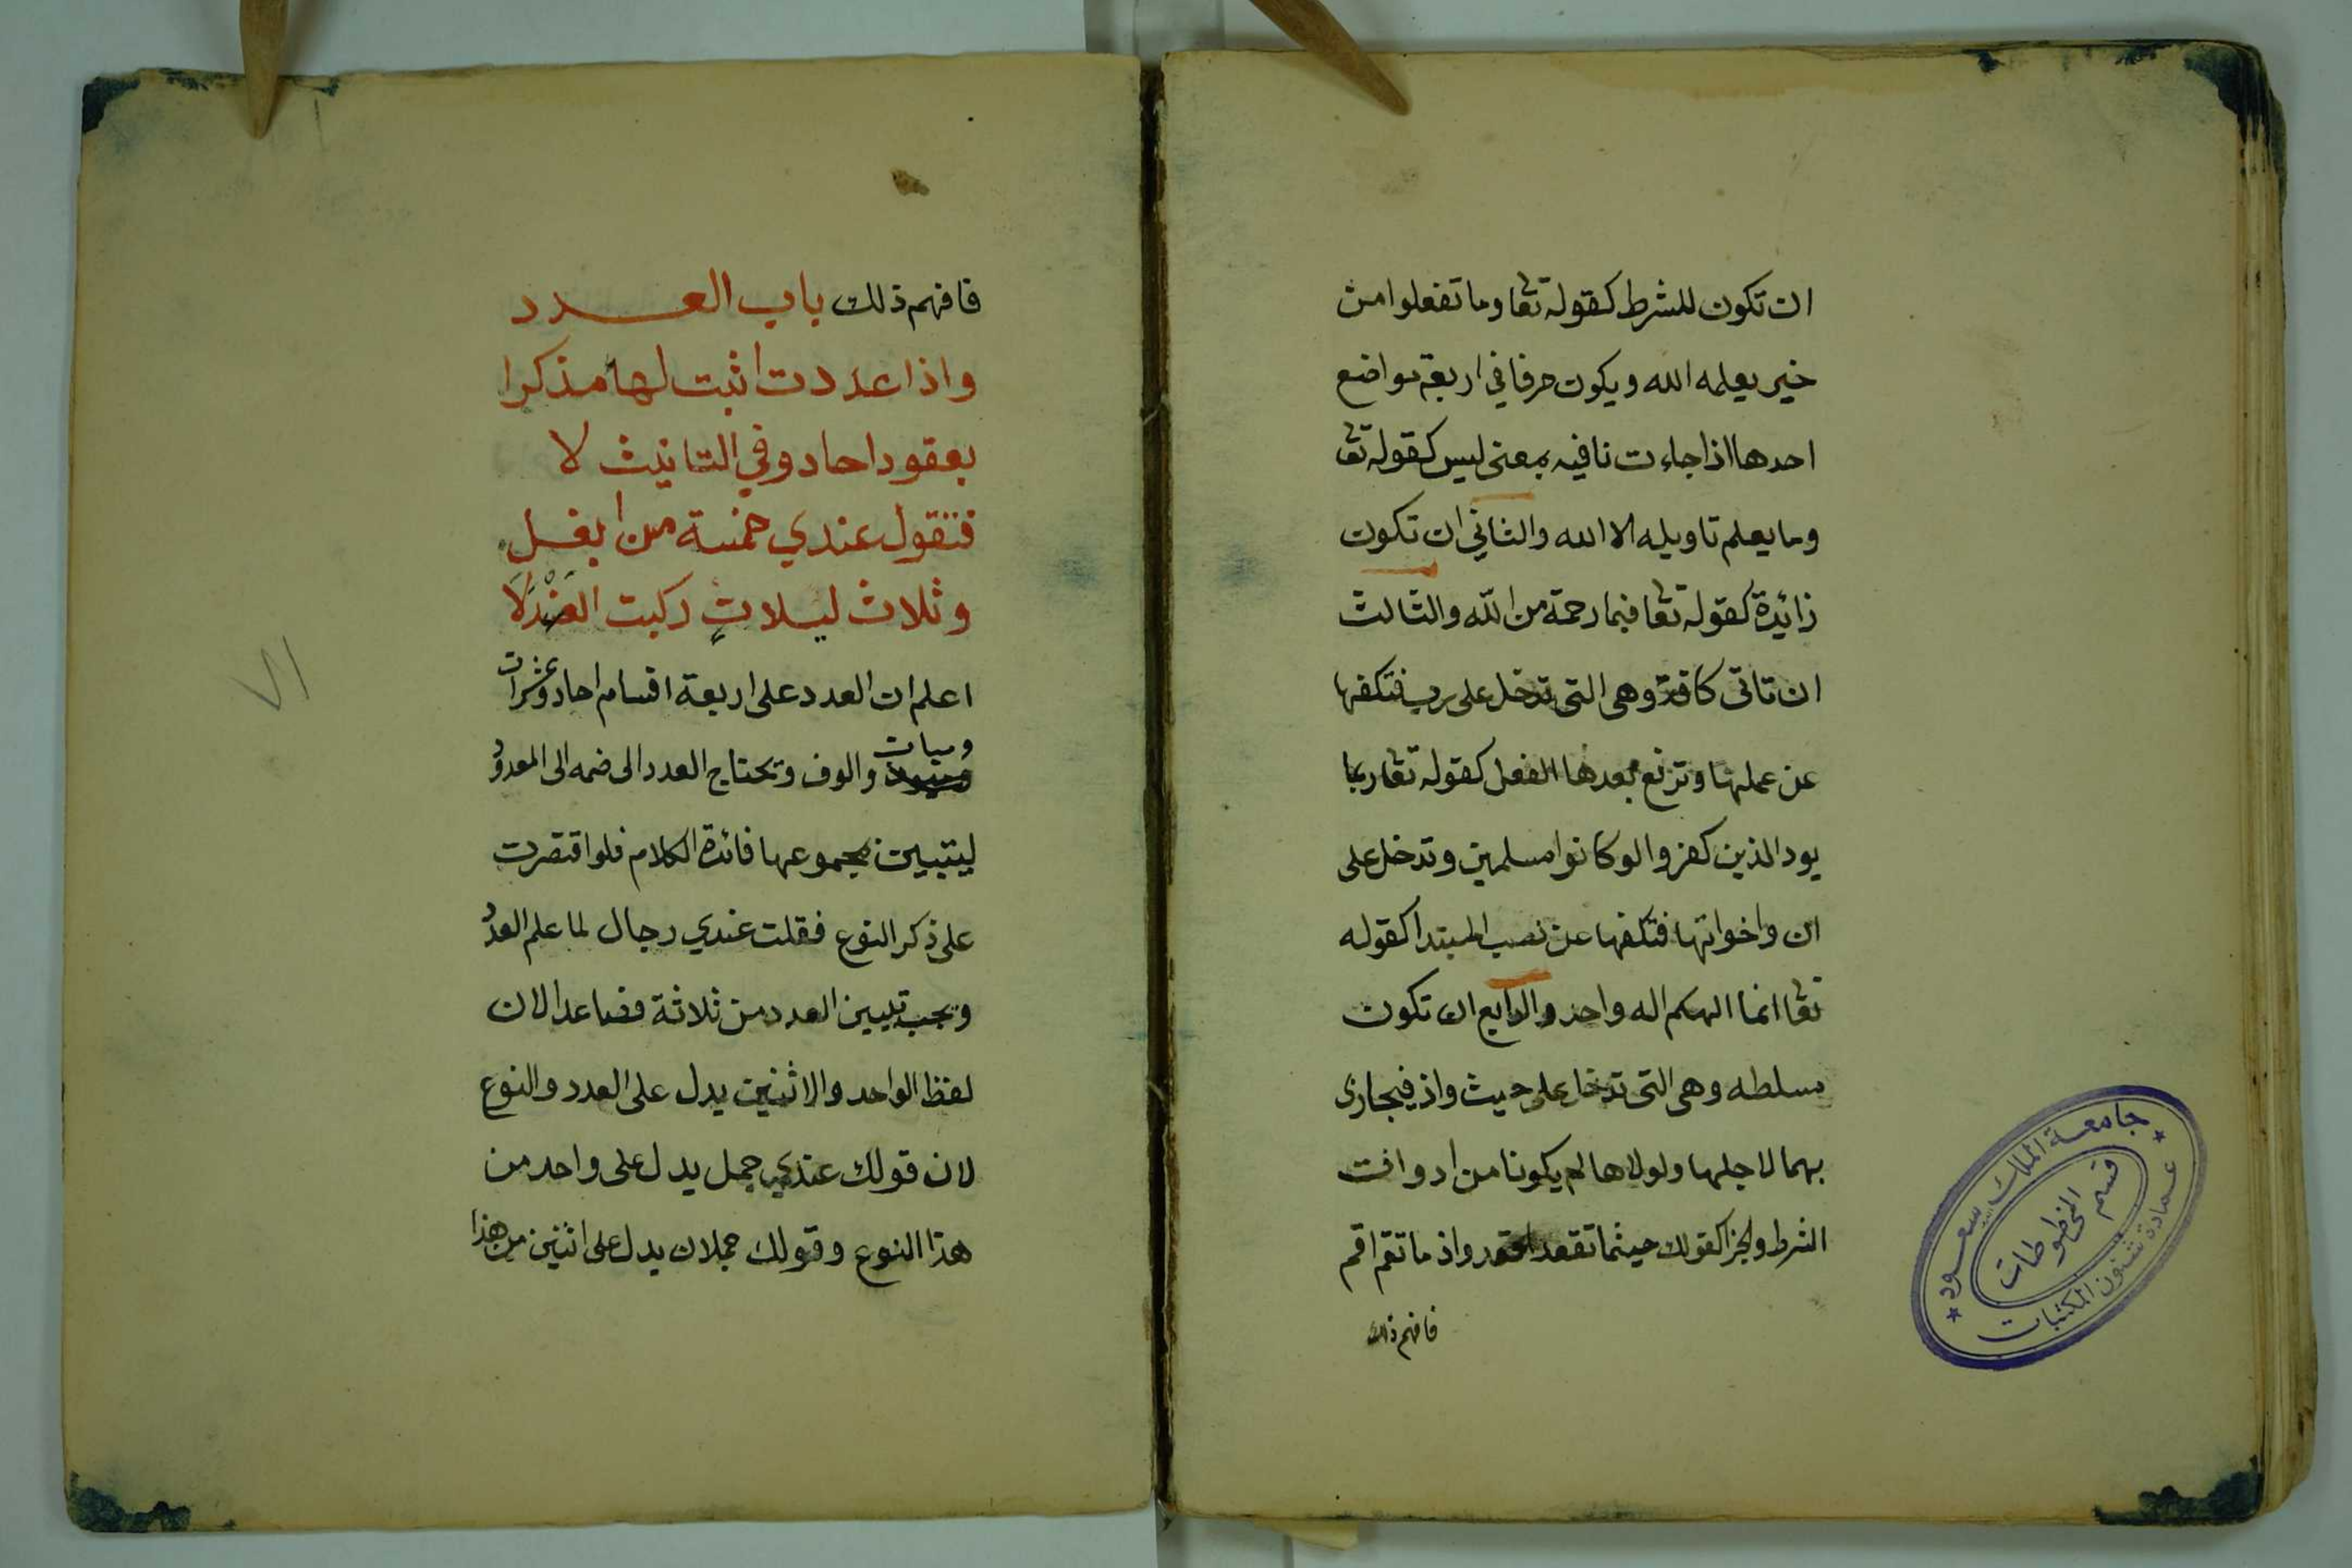 ان تكون للشرط كقوله تعا وما تفعلوا من
خير يعلمه الله ويكون حرفا في اربعة مواضع
احدها اذا جاءت نافيه بمعنى ليس كقوله تعا
وما يعلم تاويله الا الله والثاني ان تكون
زائدة كقوله تعا فبما رحمة من الله والثالث
ان تاتى كافة وهى التى تدخل على رب فتكفها
عن عملها وترفع بعدها الفعل كقوله تعا ربما
يود الذين كفروا لو كانوا مسلمين وتدخل على
ان واخواتها فتكفها عن نصب المبتدا كقوله
تعا انما الهكم اله واحد والرابع ان تكون
مسلطه وهى التى تدخل على حيث واذ فيجازى
بهما لاجلها ولولاها لم يكونا من ادوات
الشرط والجزا كقولك حيثما تقعد اقعد واذ ما تقم اقم
فافهم ذلك
فافهم ذلك باب العدد
واذا عددت اثبت لها مذكرا
بعقود احاد وفي التانيث لا
فتقول عندي خمسة من ابغل
وثلاث ليلات ركبت العندلا
اعلم ان العدد على اربعة اقسام احاد وعشرات
وميات والوف وتحتاج العدد الى ضمه الى المعدود
ليتبين بمجموعها فائدة الكلام فلو اقتصرت
على ذكر النوع فقلت عندي رجال لما علم العدد
ويجب تبيين العدد من ثلاثة فصاعدا لان
لفظ الواحد والاثنين يدل على العدد والنوع
لان قولك عندي جمل يدل على واحد من
هذا النوع وقولك جملان يدل على اثنين من هذا
٧١
جامعة الملك سعود
قسم المخطوطات
عمادة شئون المكتبات